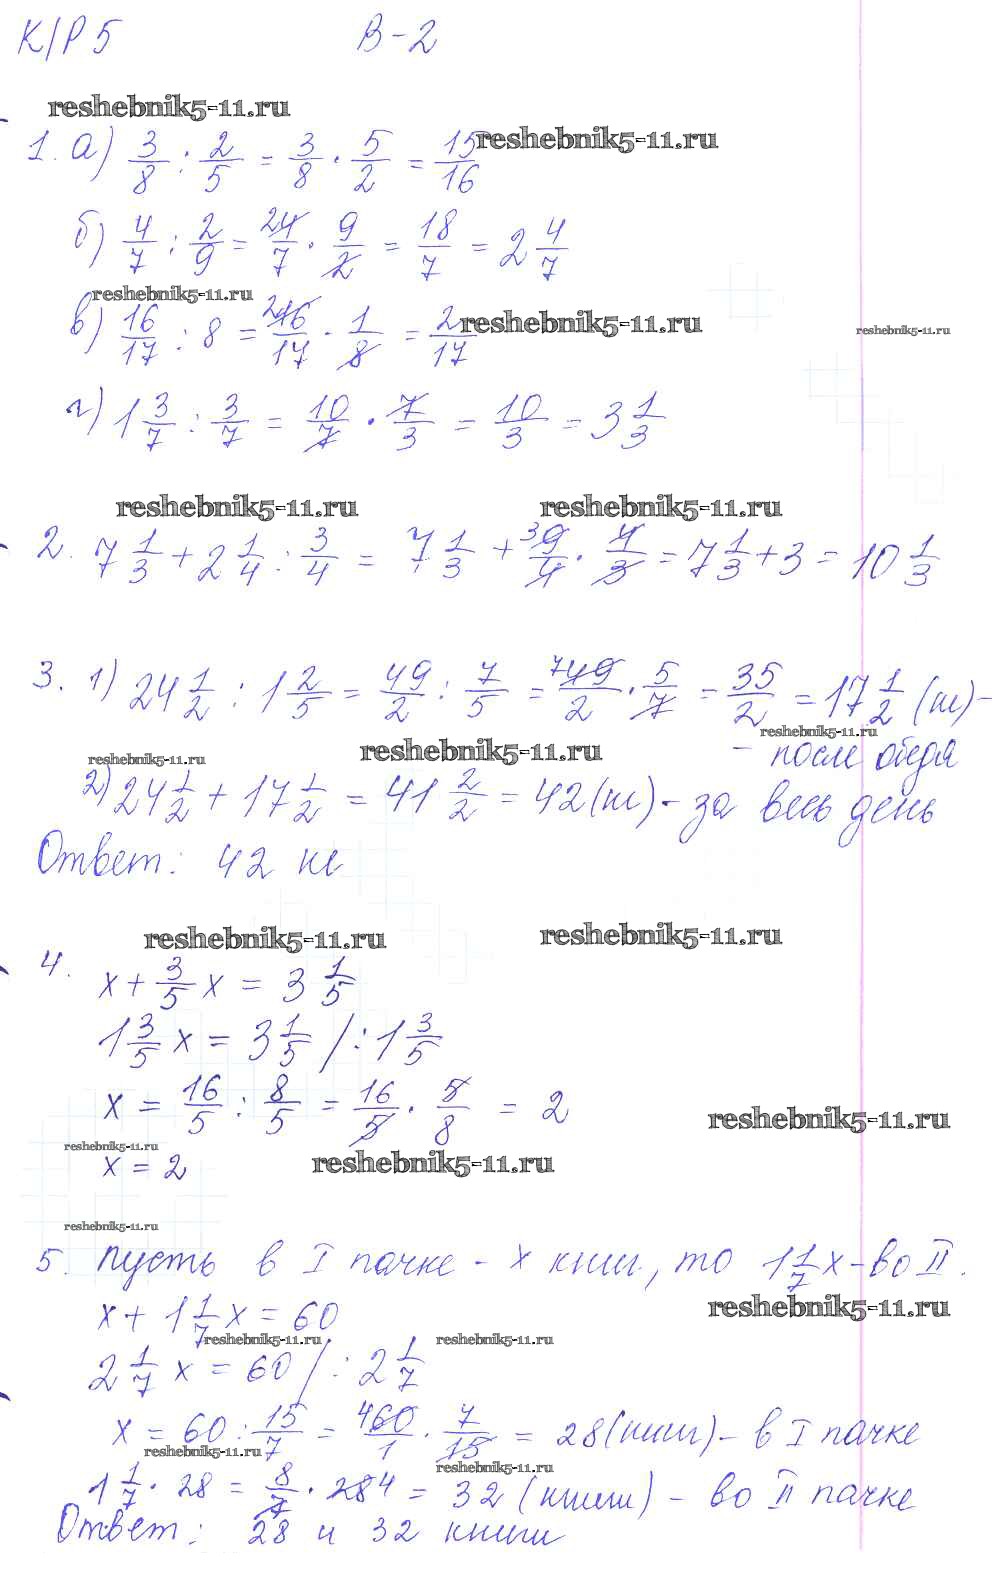 К/Р 5 В-2
reshebnik5-11.ru
reshebnik5-11.ru
1. а) 3/8 : 2/5 = 3/8 · 5/2 = 15/16
б) 4/7 : 2/9 = 2 4/7 · 9/2 = 18/7 = 2 4/7
reshebnik5-11.ru
reshebnik5-11.ru
reshebnik5-11.ru
в) 16/17 : 8 = 2 16/17 · 1/8 = 2/17
г) 1 3/7 : 3/7 = 10/7 · 7/3 = 10/3 = 3 1/3
reshebnik5-11.ru reshebnik5-11.ru
2. 7 1/3 + 2 1/4 : 3/4 = 7 1/3 + 3 9/4 · 4/3 = 7 1/3 + 3 = 10 1/3
3. 1) 24 1/2 : 1 2/5 = 49/2 : 7/5 = 7 49/2 · 5/7 = 35/2 = 17 1/2 (м) -
reshebnik5-11.ru reshebnik5-11.ru reshebnik5-11.ru
- после обеда
2) 24 1/2 + 17 1/2 = 41 2/2 = 42 (м) - за весь день
Ответ: 42 м
reshebnik5-11.ru reshebnik5-11.ru
4. x + 3/5 x = 3 1/5
1 3/5 x = 3 1/5 / : 1 3/5
x = 16/5 : 8/5 = 16/5 · 5/8 = 2
reshebnik5-11.ru
reshebnik5-11.ru reshebnik5-11.ru
x = 2
reshebnik5-11.ru
5. Пусть в I пачке - x книг, то 1 1/7 x - во II.
reshebnik5-11.ru
x + 1 1/7 x = 60
reshebnik5-11.ru reshebnik5-11.ru
2 1/7 x = 60 / : 2 1/7
x = 60 : 15/7 = 4 60/1 · 7/15 = 28 (книг) - в I пачке
reshebnik5-11.ru reshebnik5-11.ru
1 1/7 · 28 = 8/7 · 28 4 = 32 (книги) - во II пачке
Ответ: 28 и 32 книги